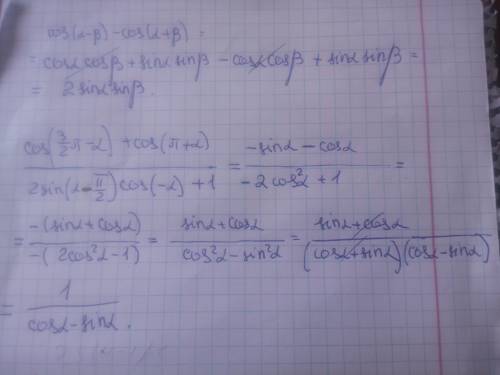 cos(α-β) - cos(α+β) =
= cosα cosβ + sinα sinβ - cosα cosβ + sinα sinβ =
= 2 sinα sinβ.
(cos(3/2 π - α) + cos(π+α)) / (2 sin(α - π/2) cos(-α) + 1) = (-sinα - cosα) / (-2 cos²α + 1) =
= (-(sinα + cosα)) / (-(2cos²α - 1)) = (sinα + cosα) / (cos²α - sin²α) = (sinα + cosα) / ((cosα + sinα)(cosα - sinα))
= 1 / (cosα - sinα).